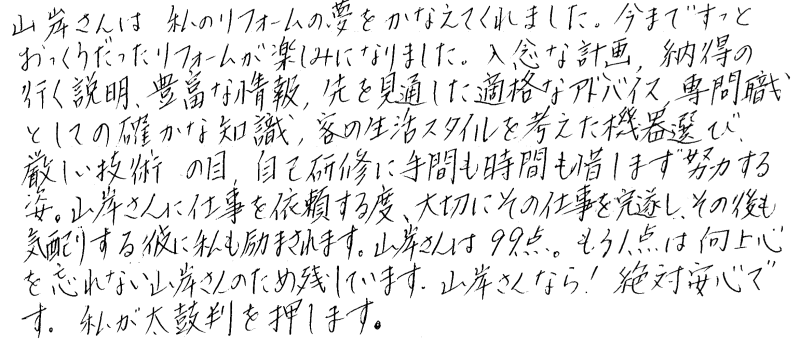 山岸さんは 私のリフォームの夢をかなえてくれました。今まで ずっと
おっくうだったリフォームが楽しみになりました。入念な計画，納得の
行く説明、豊富な情報，先を見通した適格なアドバイス，専門職
としての確かな知識，客の生活スタイルを考えた機器選び、
厳しい技術 の目，自己研修に手間も時間も惜しまず努力する
姿。山岸さんに仕事を依頼する度、大切にその仕事を完遂し、その後も
気配りする彼に私も励まされます。山岸さんは 99点。もう1点は向上心
を忘れない山岸さんのため残しています．山岸さんなら！絶対安心で
す。私が太鼓判を押します。